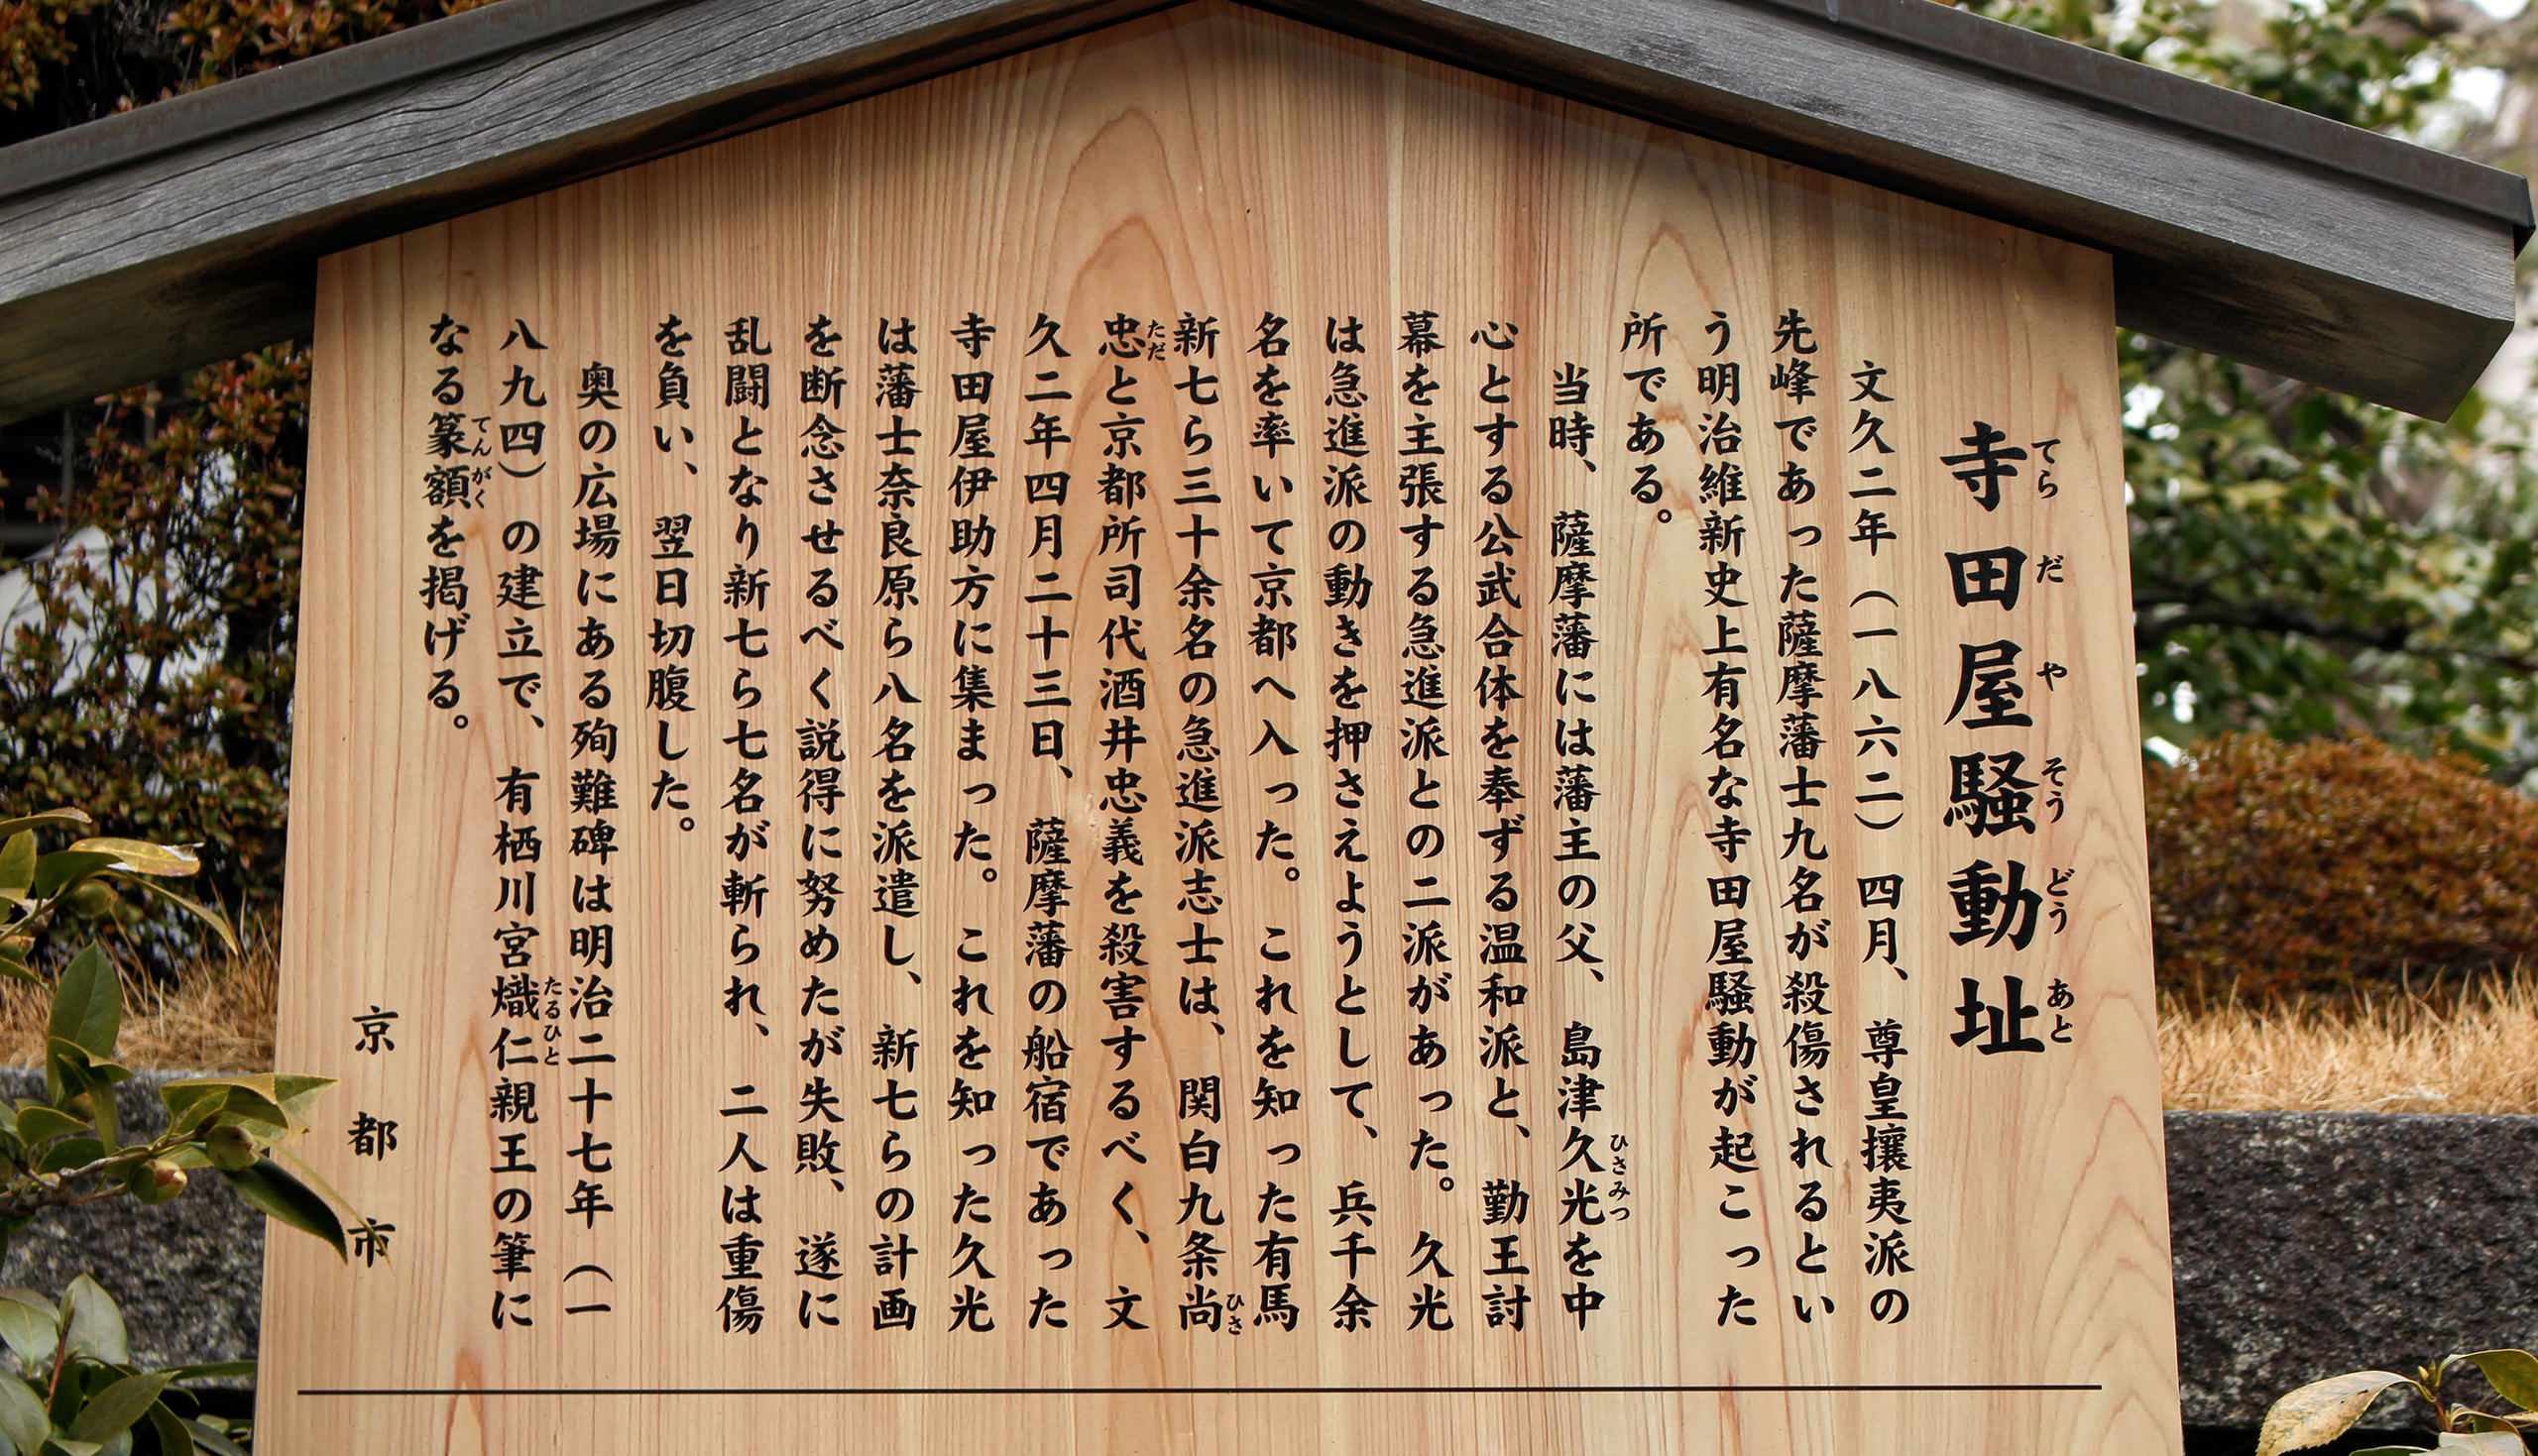 寺田屋騒動址
てらだやそうどうあと
文久二年(一八六二)四月、尊皇攘夷派の
先峰であった薩摩藩士九名が殺傷されるとい
う明治維新史上有名な寺田屋騒動が起こった
所である。
当時、薩摩藩には藩主の父、島津久光を中
ひさみつ
心とする公武合体を奉ずる温和派と、勤王討
幕を主張する急進派との二派があった。久光
は急進派の動きを押さえようとして、兵千余
名を率いて京都へ入った。これを知った有馬
新七ら三十余名の急進派志士は、関白九条尚
ひさ
忠と京都所司代酒井忠義を殺害するべく、文
ただ
久二年四月二十三日、薩摩藩の船宿であった
寺田屋伊助方に集まった。これを知った久光
は藩士奈良原ら八名を派遣し、新七らの計画
を断念させるべく説得に努めたが失敗、遂に
乱闘となり新七ら七名が斬られ、二人は重傷
を負い、翌日切腹した。
奥の広場にある殉難碑は明治二十七年(一
八九四)の建立で、有栖川宮熾仁親王の筆に
たるひと
なる篆額を掲げる。
てんがく
京都市